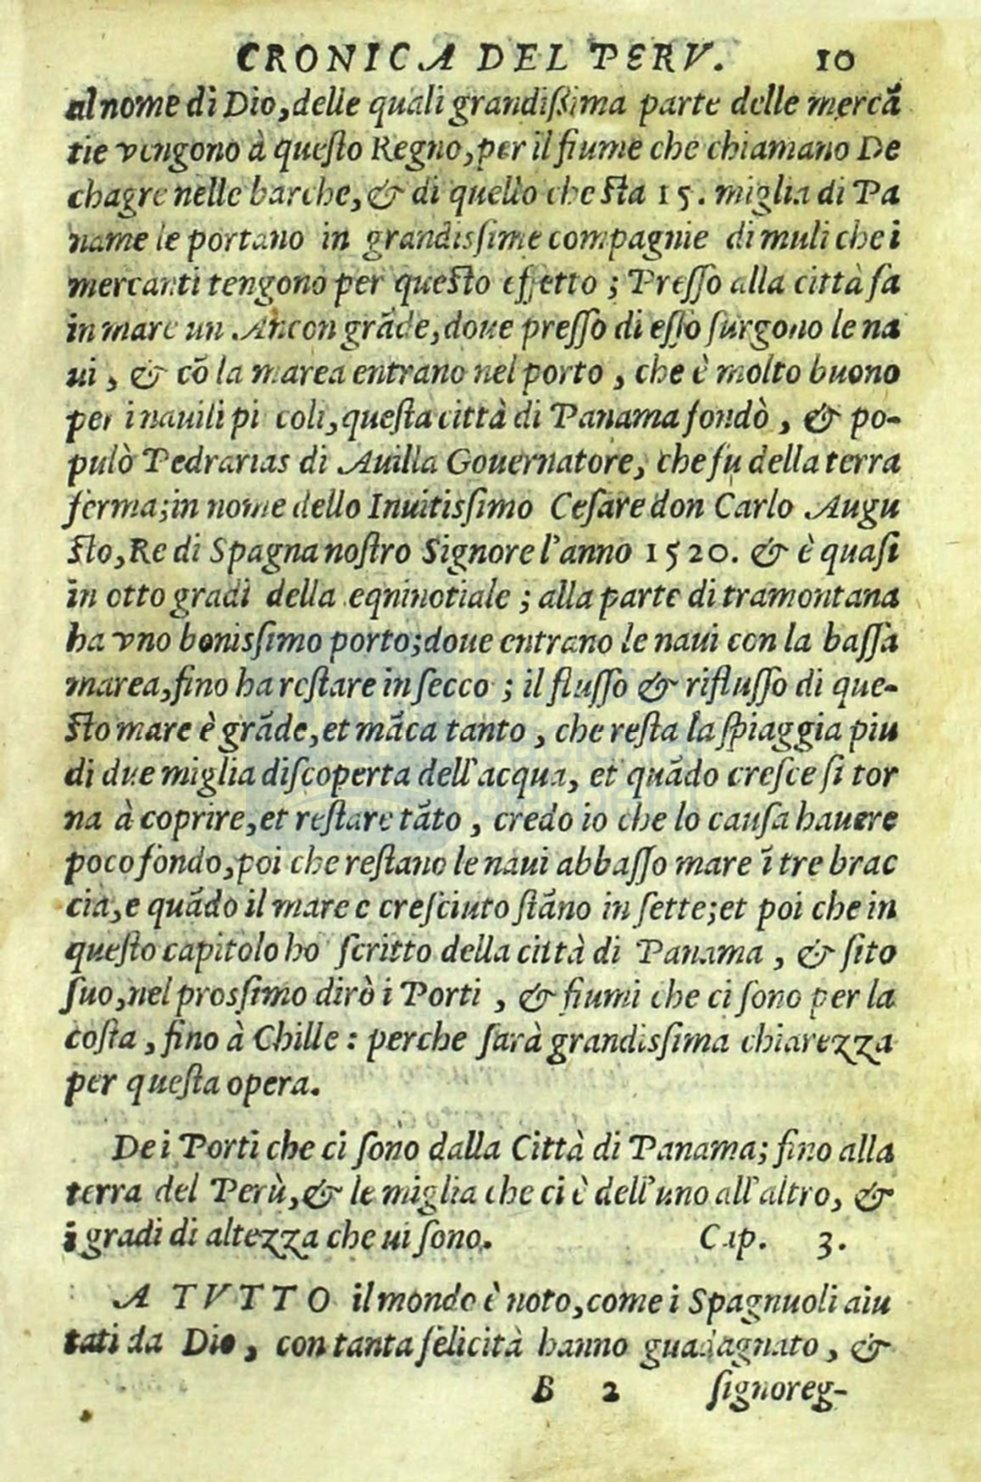 CRONICA DEL PERV. 10
al nome di Dio, delle quali grandiſsima parte delle mercā
tie vengono à queſto Regno, per il fiume che chiamano De
chagre nelle barche, & di quello che ſta 15. miglia di Pa
name le portano in grandisſime compagnie di muli che i
mercanti tengono per queſto effetto ; Preſſo alla città fa
in mare un Ancon grāde, doue preſſo di eſſo ſurgono le na
ui, & cō la marea entrano nel porto, che è molto buono
per i nauili pi coli, queſta città di Panama fondò, & po-
pulò Pedrarias di Auilla Gouernatore, che fu della terra
ferma; in nome dello Inuitisſimo Ceſare don Carlo Augu
ſto, Re di Spagna noſtro Signore l'anno 1520. & è quaſi
in otto gradi della eqninotiale ; alla parte di tramontana
ha vno bonisſimo porto; doue entrano le naui con la baſſa
marea, fino ha reſtare in ſecco ; il fluſſo & rifluſſo di que-
ſto mare è grāde, et māca tanto, che reſta la ſpiaggia piu
di due miglia diſcoperta dell'acqua, et quādo creſce ſi tor
na à coprire, et reſtare tāto, credo io che lo cauſa hauere
poco fondo, poi che reſtano le naui abbaſſo mare ī tre brac
cia, e quādo il mare e creſciuto ſtāno in ſette; et poi che in
queſto capitolo ho ſcritto della città di Panama, & ſito
ſuo, nel prosſimo dirò i Porti, & fiumi che ci ſono per la
coſta, fino à Chille : perche ſarà grandisſima chiarezza
per queſta opera.
De i Porti che ci ſono dalla Città di Panama; fino alla
terra del Perù, & le miglia che ci è dell'uno all'altro, &
i gradi di altezza che ui ſono. Cap. 3.
A TVTTO il mondo è noto, come i Spagnuoli aiu
tati da Dio, con tanta felicità hanno guadagnato, &
B 2 ſignoreg-